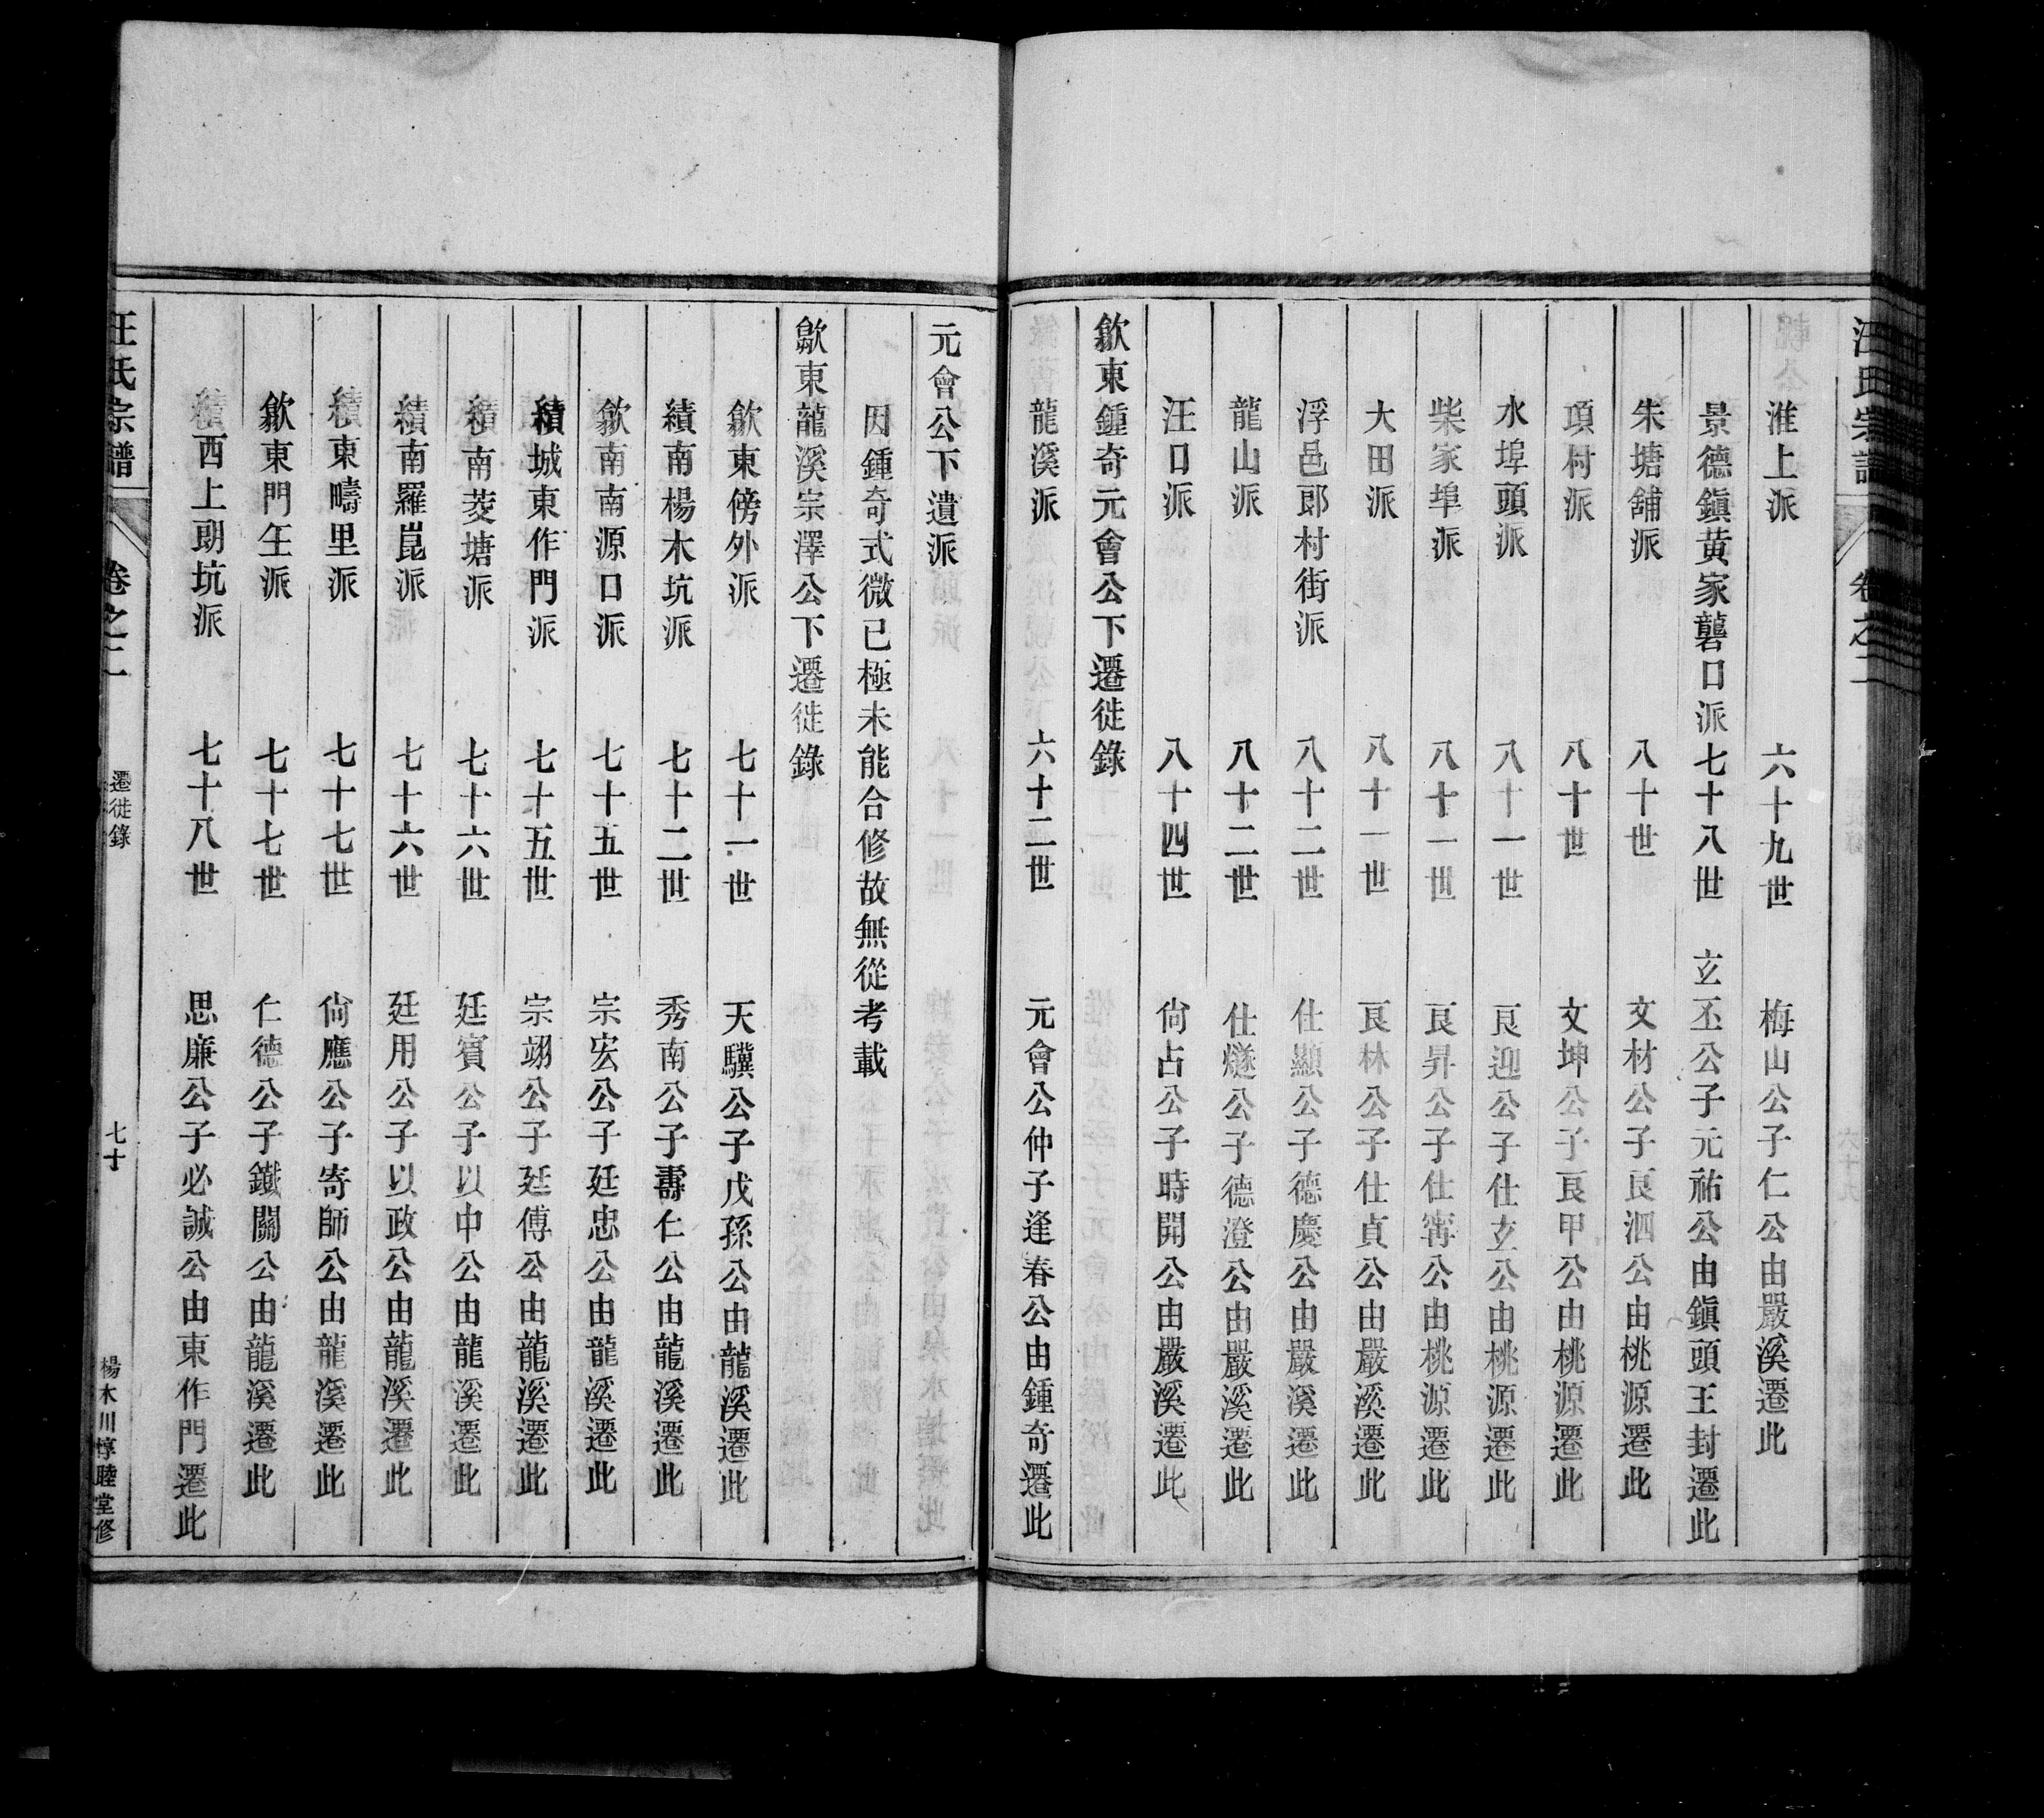 汪氏宗譜 卷之二
淮上派 六十九世 梅山公子仁公由嚴溪遷此
景德鎮黃家礱口派 七十八世 玄丕公子元祐公由鎮頭王封遷此
朱塘舖派 八十世 文材公子良泗公由桃源遷此
項村派 八十世 文坤公子良甲公由桃源遷此
水埠頭派 八十一世 良迎公子仕玄公由桃源遷此
柴家埠派 八十一世 良昇公子仕甯公由桃源遷此
大田派 八十一世 良林公子仕貞公由嚴溪遷此
浮邑郎村街派 八十二世 仕顯公子德慶公由嚴溪遷此
龍山派 八十二世 仕燧公子德澄公由嚴溪遷此
汪口派 八十四世 尙占公子時開公由嚴溪遷此
歙東鍾奇元會公下遷徙錄
龍溪派 六十二世 元會公仲子逢春公由鍾奇遷此
元會公下遺派
因鍾奇式微已極未能合修故無從考載
歙東龍溪宗澤公下遷徙錄
歙東傍外派 七十一世 天驥公子戊孫公由龍溪遷此
績南楊木坑派 七十二世 秀南公子壽仁公由龍溪遷此
歙南南源口派 七十五世 宗宏公子廷忠公由龍溪遷此
績城東作門派 七十五世 宗翊公子廷傅公由龍溪遷此
績南菱塘派 七十六世 廷賓公子以中公由龍溪遷此
績南羅崑派 七十六世 廷用公子以政公由龍溪遷此
績東疇里派 七十七世 尙應公子寄師公由龍溪遷此
歙東門全派 七十七世 仁德公子鐵關公由龍溪遷此
績西上朗坑派 七十八世 思廉公子必誠公由東作門遷此
汪氏宗譜 卷之二 遷徙錄 七十 楊木川惇睦堂修